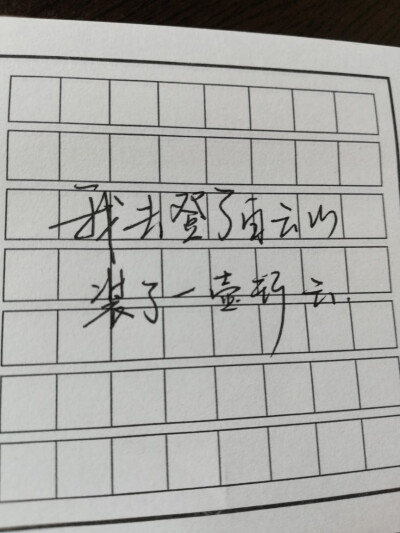 我去登了白云山
装了一壶新云.